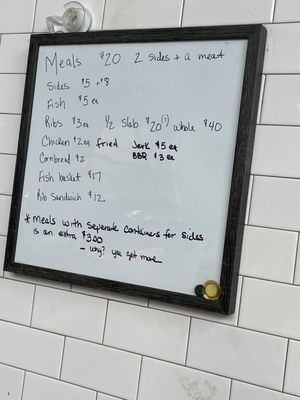 Meals $20 2 sides + a meat
Sides $5 + $8
Fish $5 ea
Ribs $3 ea 1/2 Slab $20 whole $40
Chicken $2 ea fried Jerk $5 ea
BBQ $3 ea
Cornbread $2
Fish basket $17
Rib Sandwich $12
* Meals with seperate containers for sides
is an extra $3.00
- why? you get more